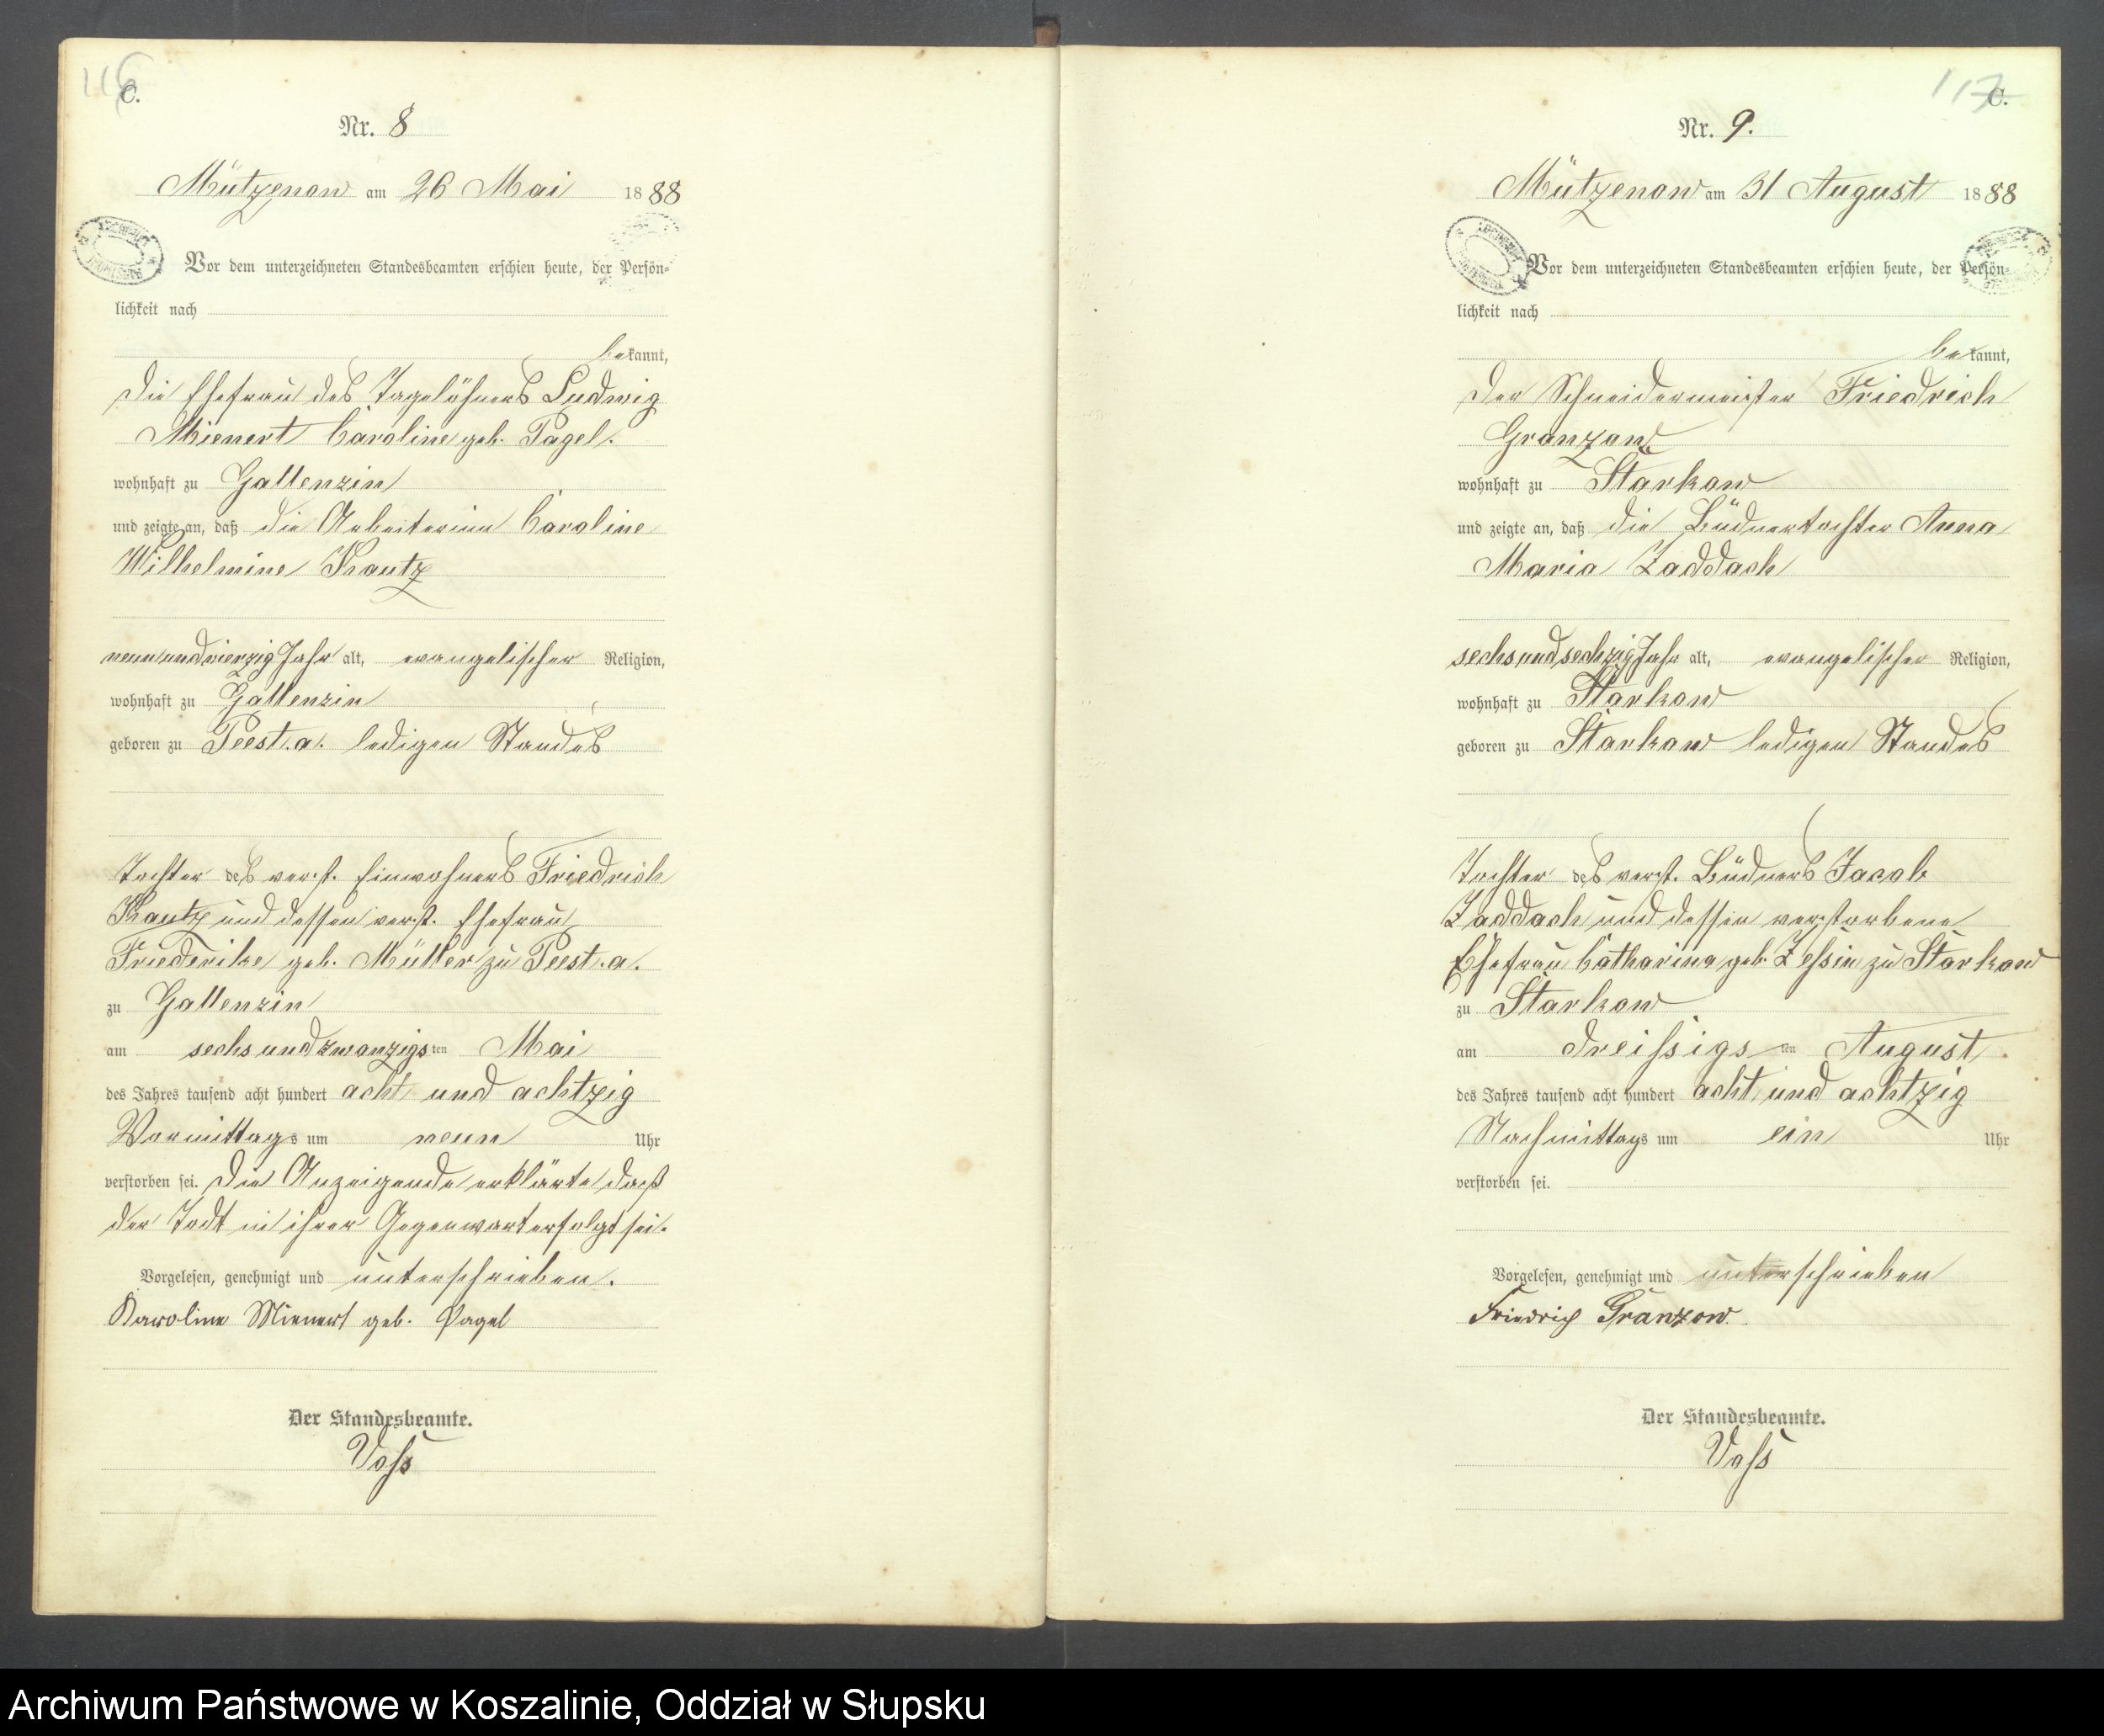 116
C.
Nr. 8
Mützenow am 26 Mai 1888
Vor dem unterzeichneten Standesbeamten erschien heute, der Persön-
lichkeit nach
bekannt,
die Ehefrau des Tagelöhners Ludwig
Mienert Caroline geb. Pagel.
wohnhaft zu Gallenzin
und zeigte an, daß die Arbeiterinn Caroline
Wilhelmine Krautz
neunundvierzig Jahr alt, evangelischer Religion,
wohnhaft zu Gallenzin
geboren zu Peest.a. ledigen Standes
Tochter des verst. Einwohners Friedrich
Krautz und dessen verst. Ehefrau
Friederike geb. Müller zu Peest.a.
zu Gallenzin
am sechsundzwanzigsten Mai
des Jahres tausend acht hundert acht und achtzig
Vormittags um neun Uhr
verstorben sei. Die Anzeigende erklärte daß
der Todt in ihrer Gegenwart erfolgt sei.
Vorgelesen, genehmigt und unterschrieben.
Karoline Mienert geb. Pagel
Der Standesbeamte.
Voss
117
C.
Nr. 9.
Mützenow am 31 August 1888
Vor dem unterzeichneten Standesbeamten erschien heute, der Persön-
lichkeit nach
bekannt,
der Schneidermeister Friedrich
Granzow
wohnhaft zu Starkow
und zeigte an, daß die Büdnertochter Anna
Maria Zaddach
sechsundsechzig Jahr alt, evangelischer Religion,
wohnhaft zu Starkow
geboren zu Starkow ledigen Standes
Tochter des verst. Büdners Jacob
Zaddach und dessen verstorbene
Ehefrau Catharina geb. Zessin zu Starkow
zu Starkow
am dreissigsten August
des Jahres tausend acht hundert acht und achtzig
Nachmittags um ein Uhr
verstorben sei.
Vorgelesen, genehmigt und unterschrieben
Friedrich Granzow.
Der Standesbeamte.
Voss
Archiwum Państwowe w Koszalinie, Oddział w Słupsku